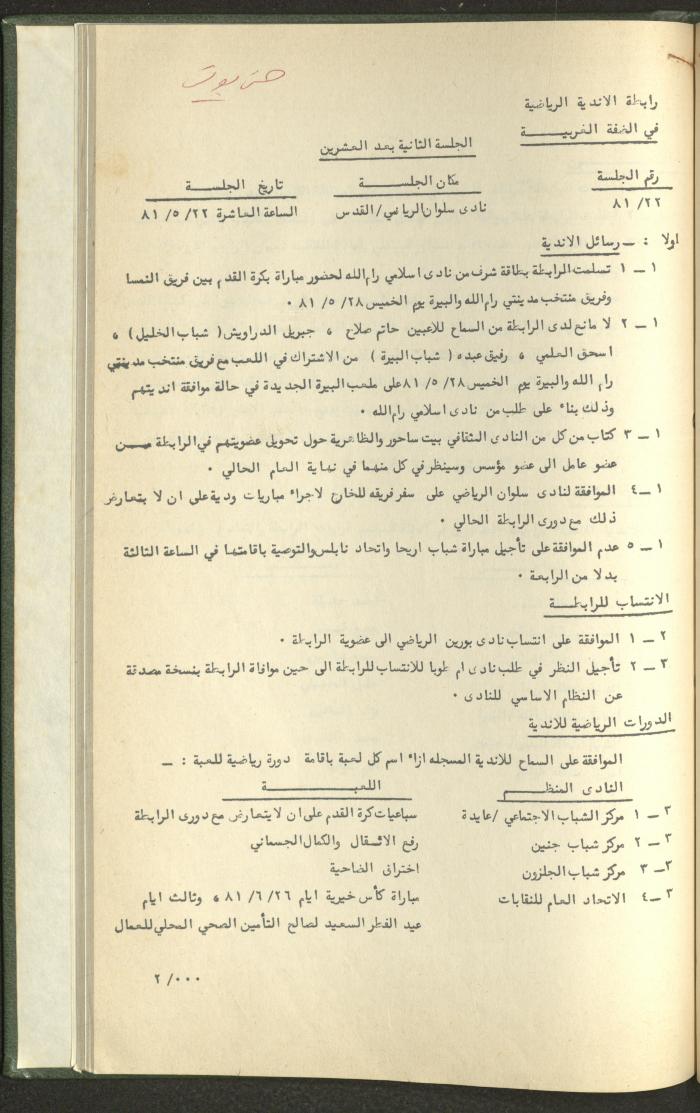 رابطة الاندية الرياضية
في الضفة الغربيـــــة
الجلسة الثانية بعد العشرين
رقم الجلسة
مكان الجلســـــة
تاريخ الجلســـة
٢٢/ ٨١
نادى سلوان الرياضي/القدس
الساعة العاشرة ٢٢/ ٥/ ٨١
اولا : ــ رسائل الاندية
١ ــ ١ تسلمت الرابطة بطاقة شرف من نادى اسلامي رام الله لحضور مباراة بكرة القدم بين فريق النمسا
وفريق منتخب مدينتي رام الله والبيرة يوم الخميس ٢٨/ ٥/ ٨١ ٠
١ ــ ٢ لا مانع لدى الرابطة من السماح للاعبين حاتم صلاح ، جبريل الدراويش( شباب الخليل) ،
اسحق العلمي ، رفيق عبده ( شباب البيرة ) من الاشتراك في اللعب مع فريق منتخب مدينتي
رام الله والبيرة يوم الخميس ٢٨/ ٥/ ٨١على ملعب البيرة الجديدة في حالة موافقة انديتهم
وذلك بناء على طلب من نادى اسلامي رام الله ٠
١ ــ ٣ كتاب من كل من النادى الثقافي بيت ساحور والظاهرية حول تحويل عضويتهم في الرابطة مـــن
عضو عامل الى عضو مؤسس وسينظر في كل منهما في نهاية العام الحالي ٠
١ ــ٤ الموافقة لنادى سلوان الرياضي على سفر فريقه للخارج لاجراء مباريات ودية على ان لا يتعارض
ذلك مع دورى الرابطة الحالي ٠
١ ــ ٥ عدم الموافقة على تأجيل مباراة شباب اريحا واتحاد نابلس والتوصية باقامتها في الساعة الثالثة
بدلا من الرابعة ٠
الانتساب للرابطـــة
٢ ــ ١ الموافقة على انتساب نادى بورين الرياضي الى عضوية الرابطة ٠
٣ ــ ٢ تأجيل النظر في طلب نادى ام طوبا للانتساب للرابطة الى حين موافاة الرابطة بنسخة مصدقة
عن النظام الاساسي للنادى ٠
الدورات الرياضية للاندية
الموافقة على السماح للاندية المسجله ازاء اسم كل لعبة باقامة دورة رياضية للعبة : ــ
النادى المنظـــم
اللعبـــــــــة
٣ ــ ١ مركز الشباب الاجتماعي /عايدة
سباعيات كرة القدم على ان لا يتعارض مع دورى الرابطة
٣ ــ ٢ مركز شباب جنين
رفع الاثقال والكمال الجسماني
٣ــ ٣ مركز شباب الجلزون
اختراق الضاحية
٣ ــ٤ الاتحاد العام للنقابات
مباراة كأس خيرية ايام ٢٦/ ٦/ ٨١، وثالث ايام
عيد الفطر السعيد لصالح التأمين الصحي المحلي للعمال
٠٠٠/ ٢